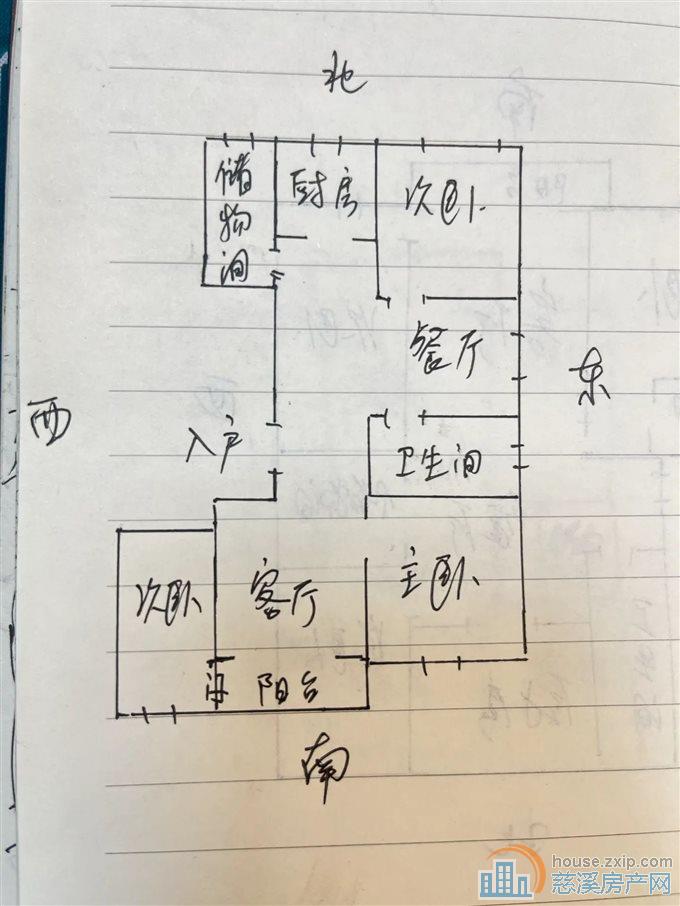 北
储物间
厨房
次卧
餐厅
东
西
入户
卫生间
次卧
客厅
主卧
门
阳台
南
house.zxip.com
慈溪房产网